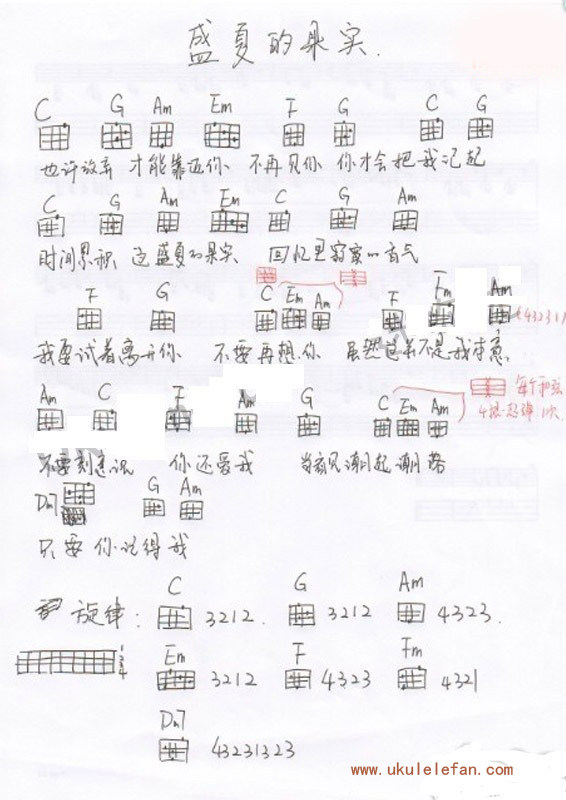 盛夏的果实.
C G Am Em F G C G
也许放弃 才能靠近你、不再见你、你才会把我记起
C G Am Em C G Am
时间累积 这盛夏的果实、回忆里寂寞的香气
F G C Em Am F Em Am (43231)
我要试着离开你 不要再想你 虽然这并不是我本意
Am C F Am G C Em Am 每个和弦 4根一起弹 1次.
不要刻意说 你还爱我 当看尽潮起潮落
Dm7 G Am
只要你记得我
旋律: C 3212. G 3212 Am 4323.
1234 Em 3212 F 4323 Fm 4321
Dm7 43231323
www.ukulelefan.com